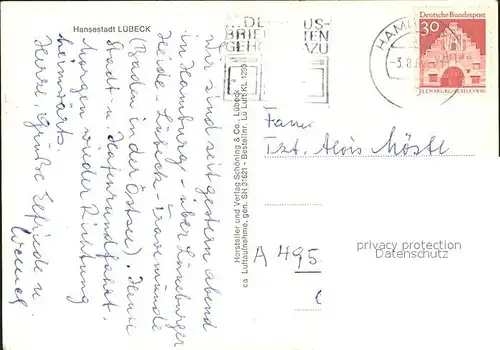 Hansestadt LÜBECK
Wir sind seit gestern abend
in Hamburg - über Lüneburger
Heide - Lübeck - Travemünde
(Baden in der Ostsee). Heute
Stadt u. Hafenrundfahrt.
Morgen wieder Richtung
heimwärts.
Herzl. Grüße Elfriede u.
Hersteller und Verlag: Schöning & Co., Lübeck
ca Luftaufnahme, gen. SH 31621 - Bestellnr. Lü Luft KL 1293
BRIEF
GEH DAZU
HAMBURG
-3.8.6
Deutsche Bundespost
30
FLENSBURG/SCHLESWIG
Fam.
Alois Möstl
A 495
privacy protection
Datenschutz